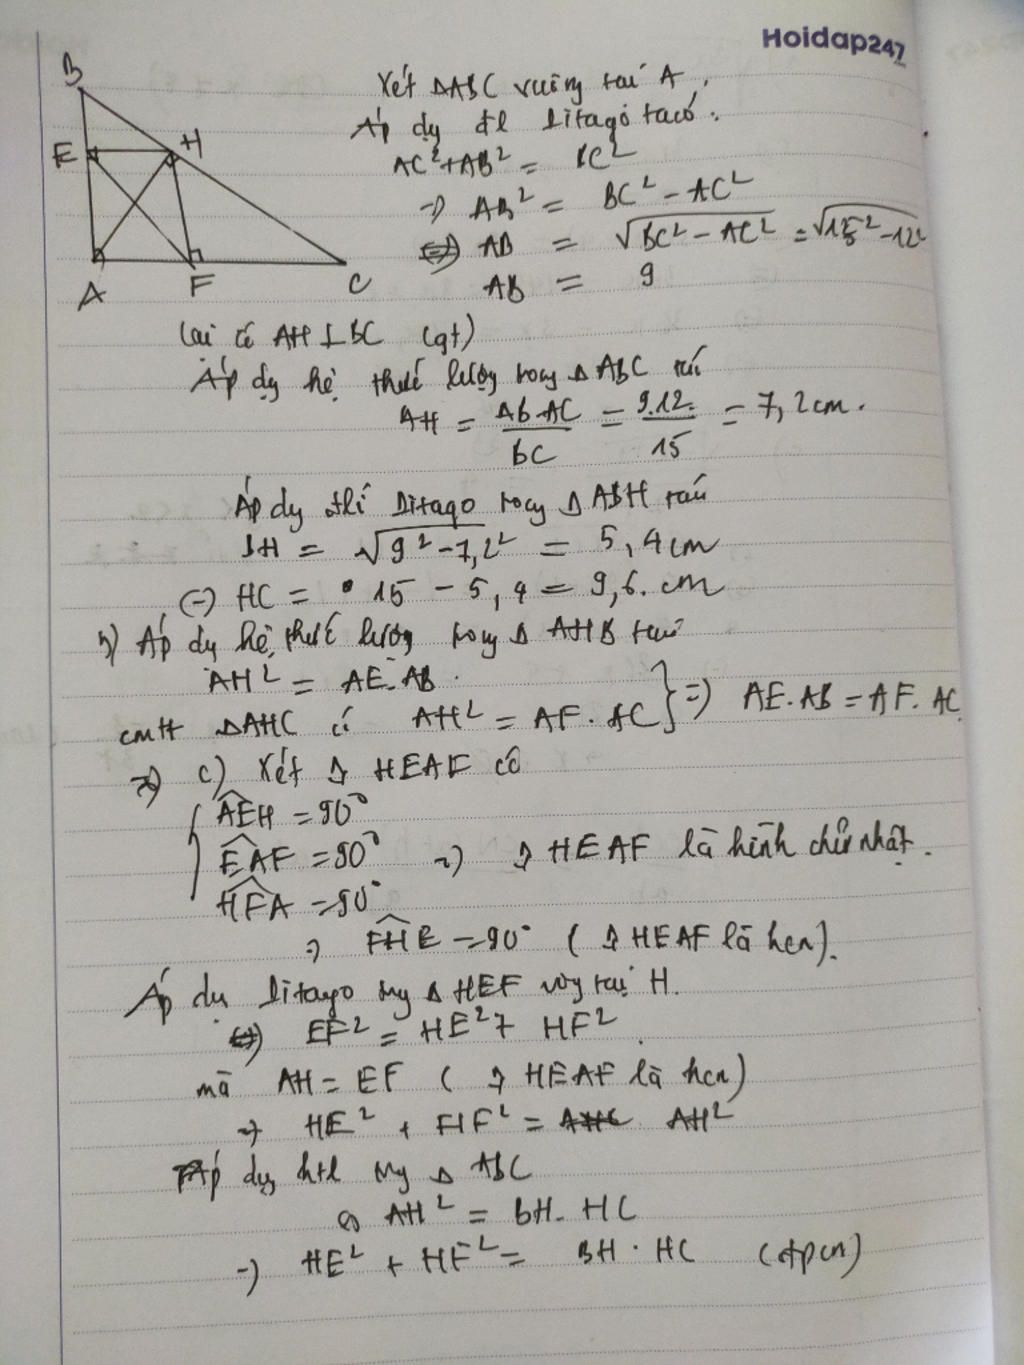 Hoidap247
B
E
H
A
F
C
Xét ΔABC vuông tại A.
Áp dụ đl Pitago ta có.
AC²+AB² = BC²
=> AB² = BC² - AC²
<=> AB = √BC² - AC² = √15² - 12²
AB = 9
Lại có AH ⊥ BC (gt)
Áp dụ hệ thức lượng trong Δ ABC
AH = AB.AC / BC = 9.12 / 15 = 7,2cm.
Áp dụ Pitago trong Δ ABH
BH = √9² - 7,2² = 5,4cm
(=) HC = 15 - 5,4 = 9,6.cm
b) Áp dụ hệ thức lượng trong Δ AHB
AH² = AE.AB.
cmtt ΔAHC có AH² = AF.AC } => AE.AB = AF.AC
c) Xét HEAF có
AEH = 90°
EAF = 90° => HEAF là hình chữ nhật.
HFA = 90°
=> FHE = 90° ( HEAF là hcn).
Áp dụ Pitago Δ HEF tại H.
EF² = HE² + HF².
mà AH = EF ( HEAF là hcn)
=> HE² + HF² = AH²
Áp dụ htl Δ ABC
AH² = BH.HC
=> HE² + HF² = BH.HC (đpcm)